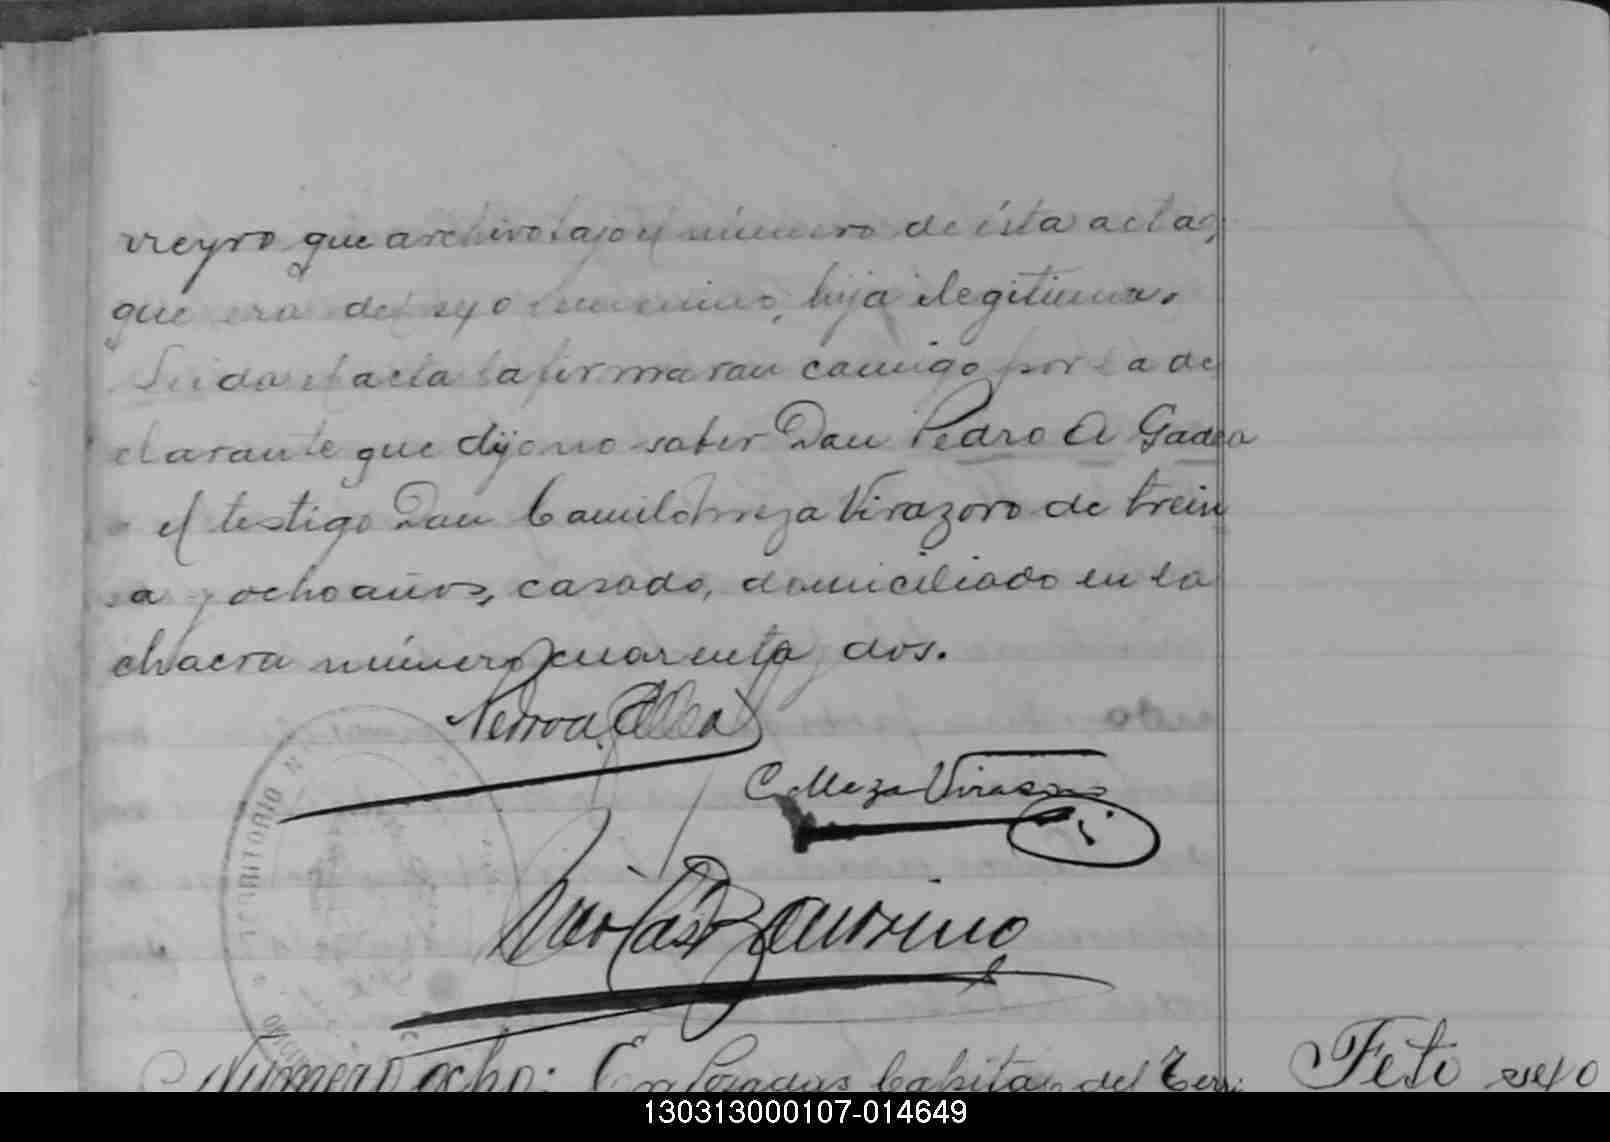 vieyro que archivo bajo el número de ésta acta,
que era del sexo femenino, hija ilegitima.
Leida el acta la firmaran camigo por la de
clarante que dijo no saber Dan Pedro A Gadea
el testigo Dan Camilo Meza Virazoro de trein
ta y ocho años, casado, domiciliado en la
chacra número cuarenta dos.
Pedro A.
C Meza Virasoro
TERRITORIO N
Número ocho: En Posadas Capital del Terri
Feto sexo
130313000107-014649